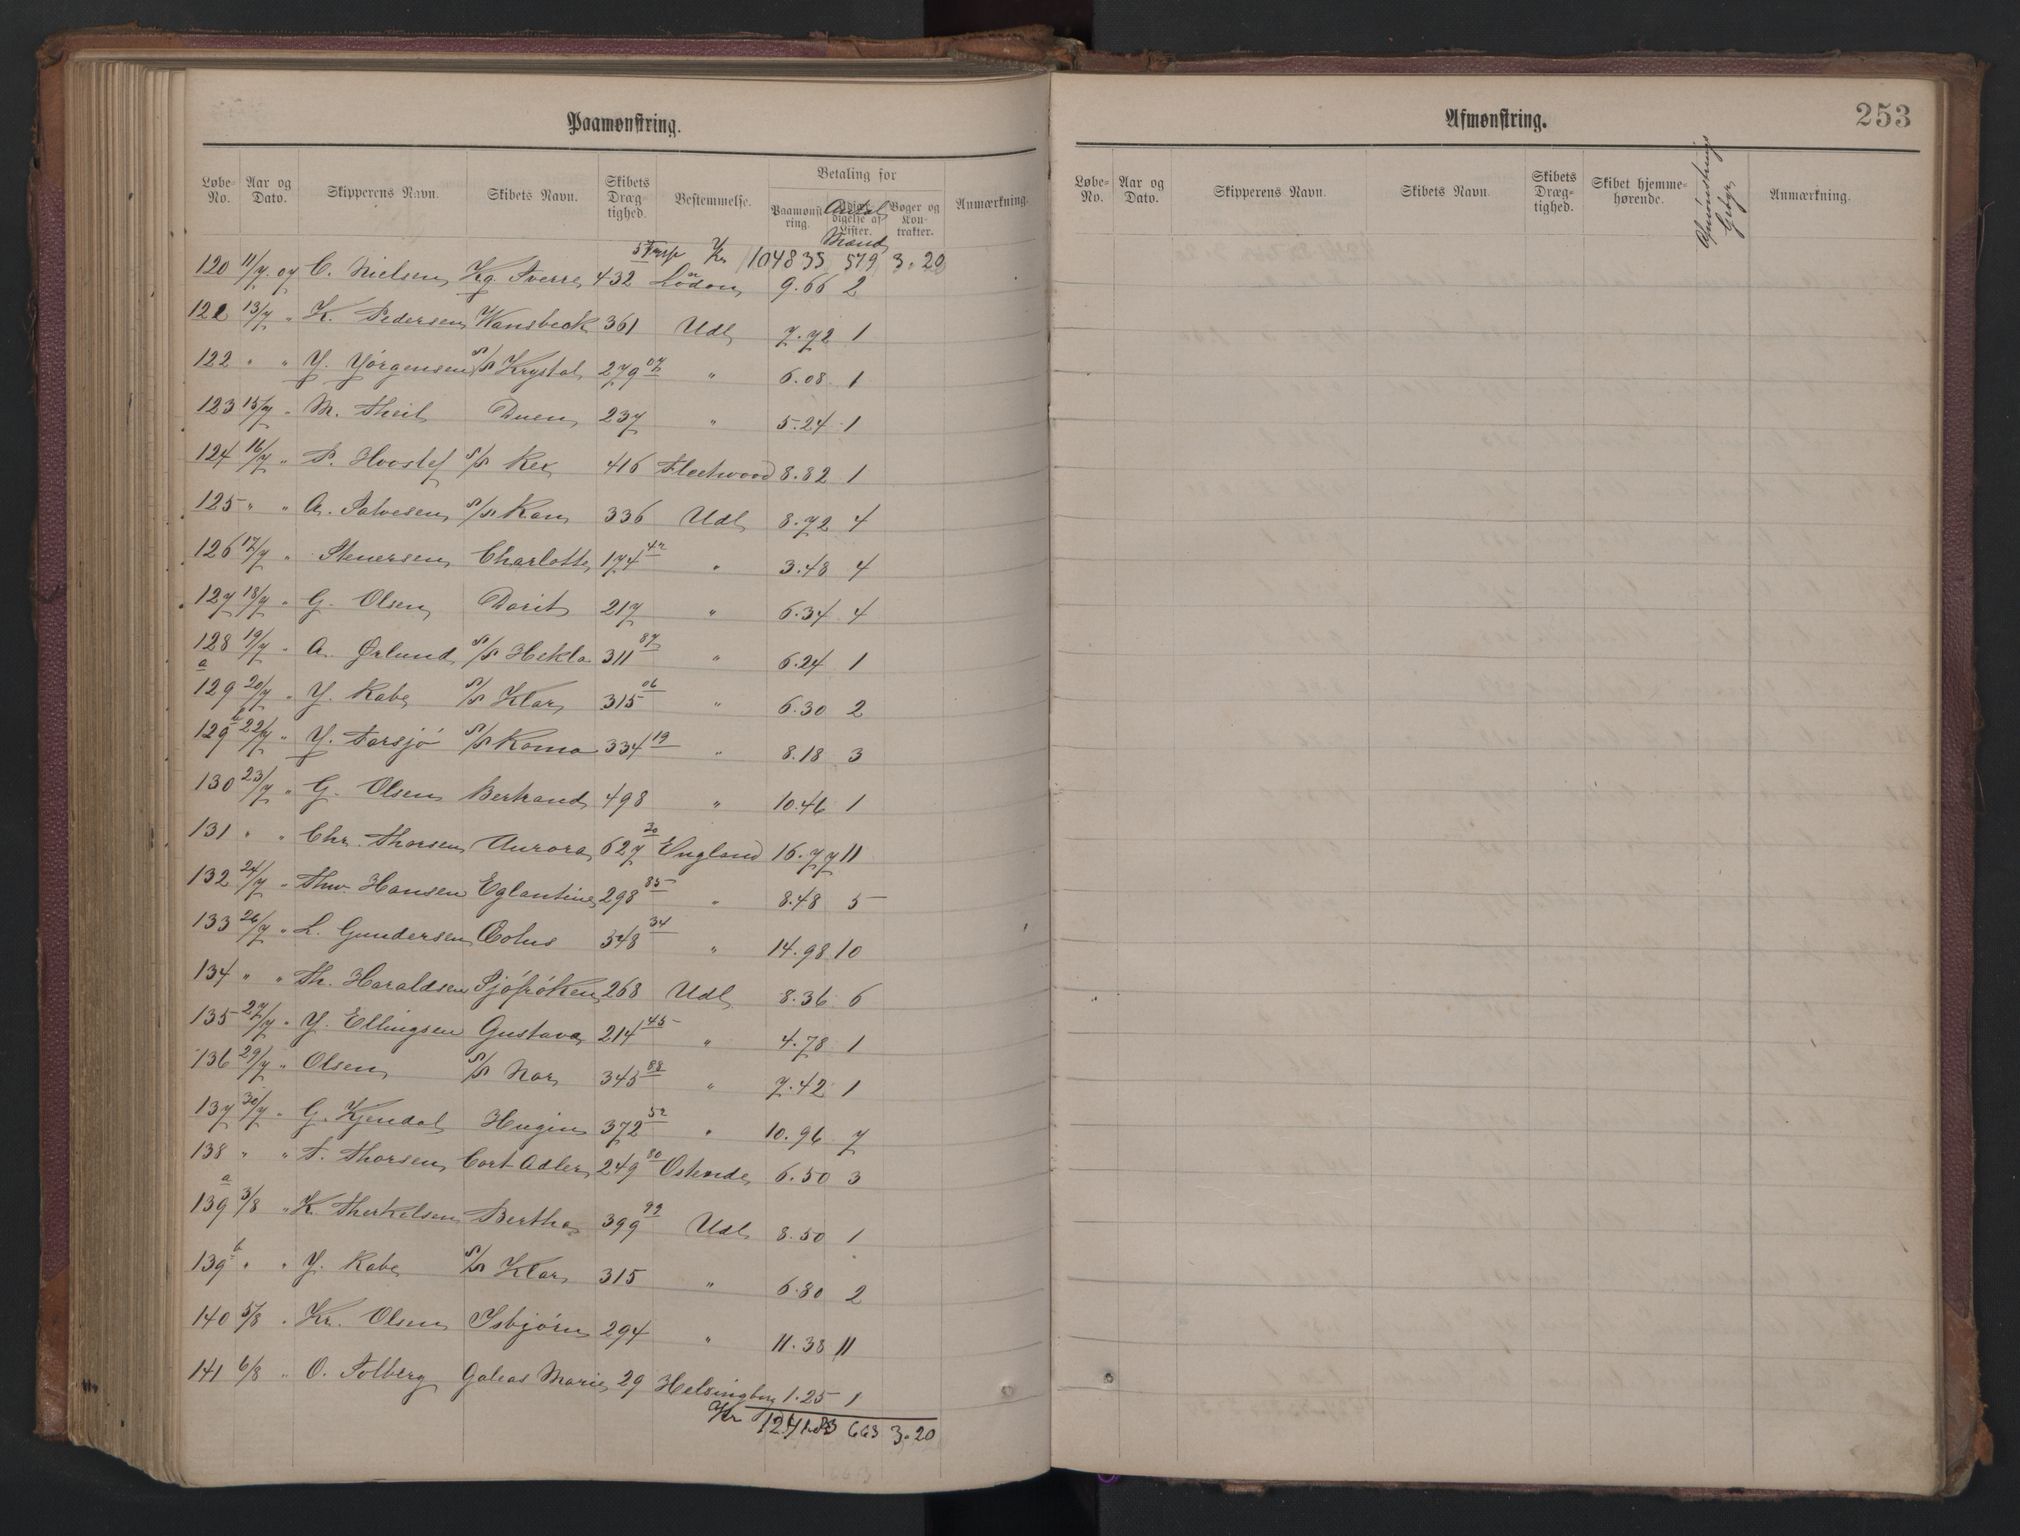 Paamønstring.
Løbe-No. Aar og Dato. Skipperens Navn. Skibets Navn. Skibets Dræg-tighed. Bestemmelse. Betaling for Anmærkning.
Paamønst-ring. Antal Mand Bøger og Kon-trakter.
Kr 1048 35 579 3.20
120 11/7 C. Nielsen Kg. Sverre 432 London 9.66 2
121 13/7 " K. Pedersen Wansbeck 361 Udl 7.72 1
122 " " J. Jørgensen S/S Krystal 279 07 " 6.08 1
123 15/7 " M. Theil Duen 237 " 5.24 1
124 16/7 " P. Hvoslef S/S Rex 416 Fleetwood 8.82 1
125 " " A. Salvesen S/S Ran 336 Udl 8.72 4
126 17/7 " Stenersen Charlotte 174 42 " 3.48 4
127 18/7 " G. Olsen Dorit 217 " 6.34 4
128 19/7 " A. Ørlund S/S Hekla 311 87 " 6.24 1
129 a 20/7 " J. Rabe S/S Klar 315 06 " 6.30 2
129 b 22/7 " J. Farsjø S/S Roma 334 19 " 8.18 3
130 23/7 " G. Olsen Bertrand 498 " 10.46 1
131 " " Chr. Thorsen Aurora 627 30 England 16.77 11
132 24/7 " Thv. Hansen Eglantine 298 85 " 8.48 5
133 26/7 " L. Gundersen Æolus 548 34 " 14.98 10
134 " " Th. Haraldsen Sjøfrøken 268 Udl 8.36 6
135 27/7 " J. Ellingsen Gustava 214 45 " 4.78 1
136 29/7 " Olsen S/S Nor 345 88 " 7.42 1
137 30/7 " G. Kjendal Hugin 372 52 " 10.96 7
138 " " T. Thorsen Cort Adler 249 80 Ostende 6.50 3
139 a 3/8 " K. Therkelsen Bertha 399 99 Udl 8.50 1
139 b " " J. Rabe S/S Klar 315 " 6.80 2
140 5/8 " Kr. Olsen Isbjørn 294 " 11.38 11
141 6/8 " O. Solberg Galeas Marie 29 Helsingborg 1.25 1
Kr 663 3.20
Afmønstring. 253
Løbe-No. Aar og Dato. Skipperens Navn. Skibets Navn. Skibets Dræg-tighed. Skibet hjemme-hørende. Afmønstrings Gebyr Anmærkning.